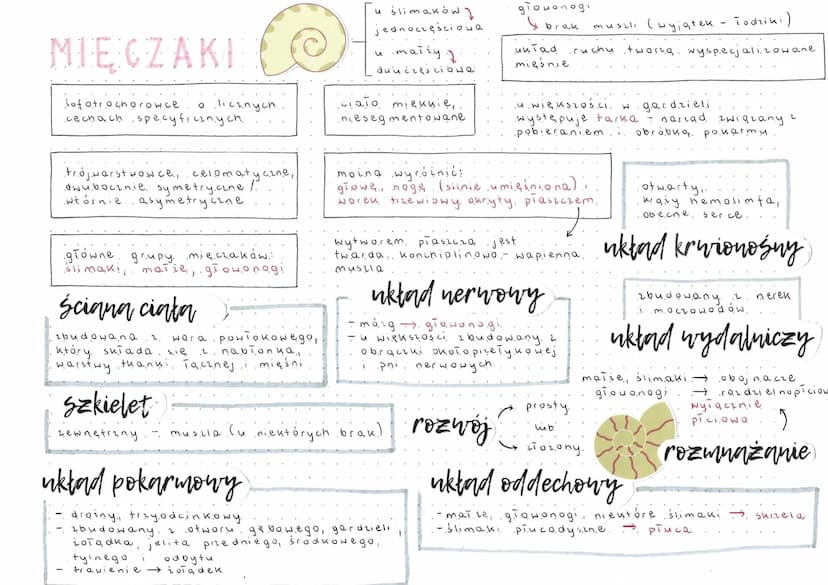 MIĘCZAKI
u ślimaków
jednoczęściowa
u małży
dwuczęściowa
głowonogi
brak muszli (wyjątek - łodziki)
układ ruchu tworzą wyspecjalizowane
mięśnie
lofotrochorowce o licznych
cechach specyficznych
ciało miękkie,
niesegmentowane
u większości w gardzieli
występuje tarka - narząd związany z
pobieraniem i obróbką pokarmu
trójwarstwowce, celomatyczne,
dwubocznie symetryczne /
wtórnie asymetryczne
można wyróżnić:
głowę, nogę (silnie umięśniona) i
worek trzewiowy okryty płaszczem
otwarty,
krąży hemolimfa,
obecne serce
układ krwionośny
główne grupy mięczaków:
ślimaki, małże, głowonogi
wytworem płaszcza jest
twarda, konchiolinowo - wapienna
muszla
ściana ciała
zbudowana z wora powłokowego,
który składa się z nabłonka,
warstwy tkanki łącznej i mięśni
układ nerwowy
- mózg → głowonogi
- u większości zbudowany z
obrączki okołoprzełykowej
i pni nerwowych
zbudowany z nerek
i moczowodów
układ wydalniczy
szkielet
zewnętrzny - muszla (u niektórych brak)
rozwój
prosty
lub
złożony
małże, ślimaki → obojnacze
głowonogi → rozdzielnopłciowe
wyłącznie
płciowo
rozmnażanie
układ pokarmowy
- drożny, trzyodcinkowy
- zbudowany z otworu gębowego, gardzieli,
żołądka, jelita przedniego, środkowego,
tylnego i odbytu
- trawienie → żołądek
układ oddechowy
- małże, głowonogi, niektóre ślimaki → skrzela
- ślimaki płucodyszne → płuca